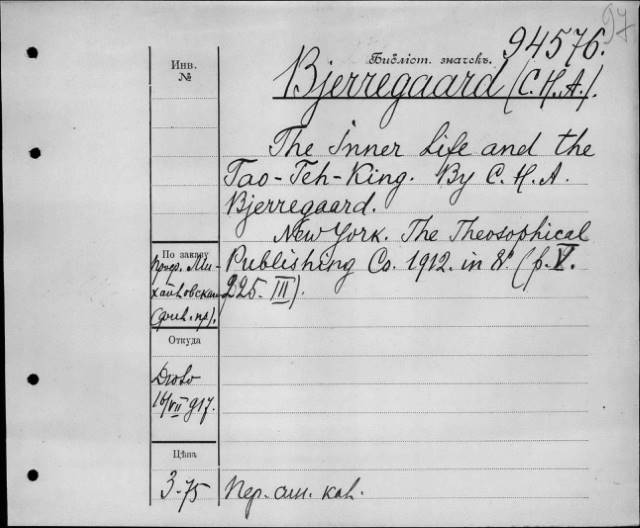 97
94576.
Библіот. значекъ.
Bjerregaard (C. H. A.).
Инв.
№
The Inner Life and the
Tao-Teh-King. By C. H. A.
Bjerregaard.
New York. The Theosophical
Publishing Co. 1912. in 8°. (p. V.
225. III).
По заказу
проф. Ми-
хайловскаго
Откуда
16/VII 917.
Цѣна
3-75
Пер. анг. кол.